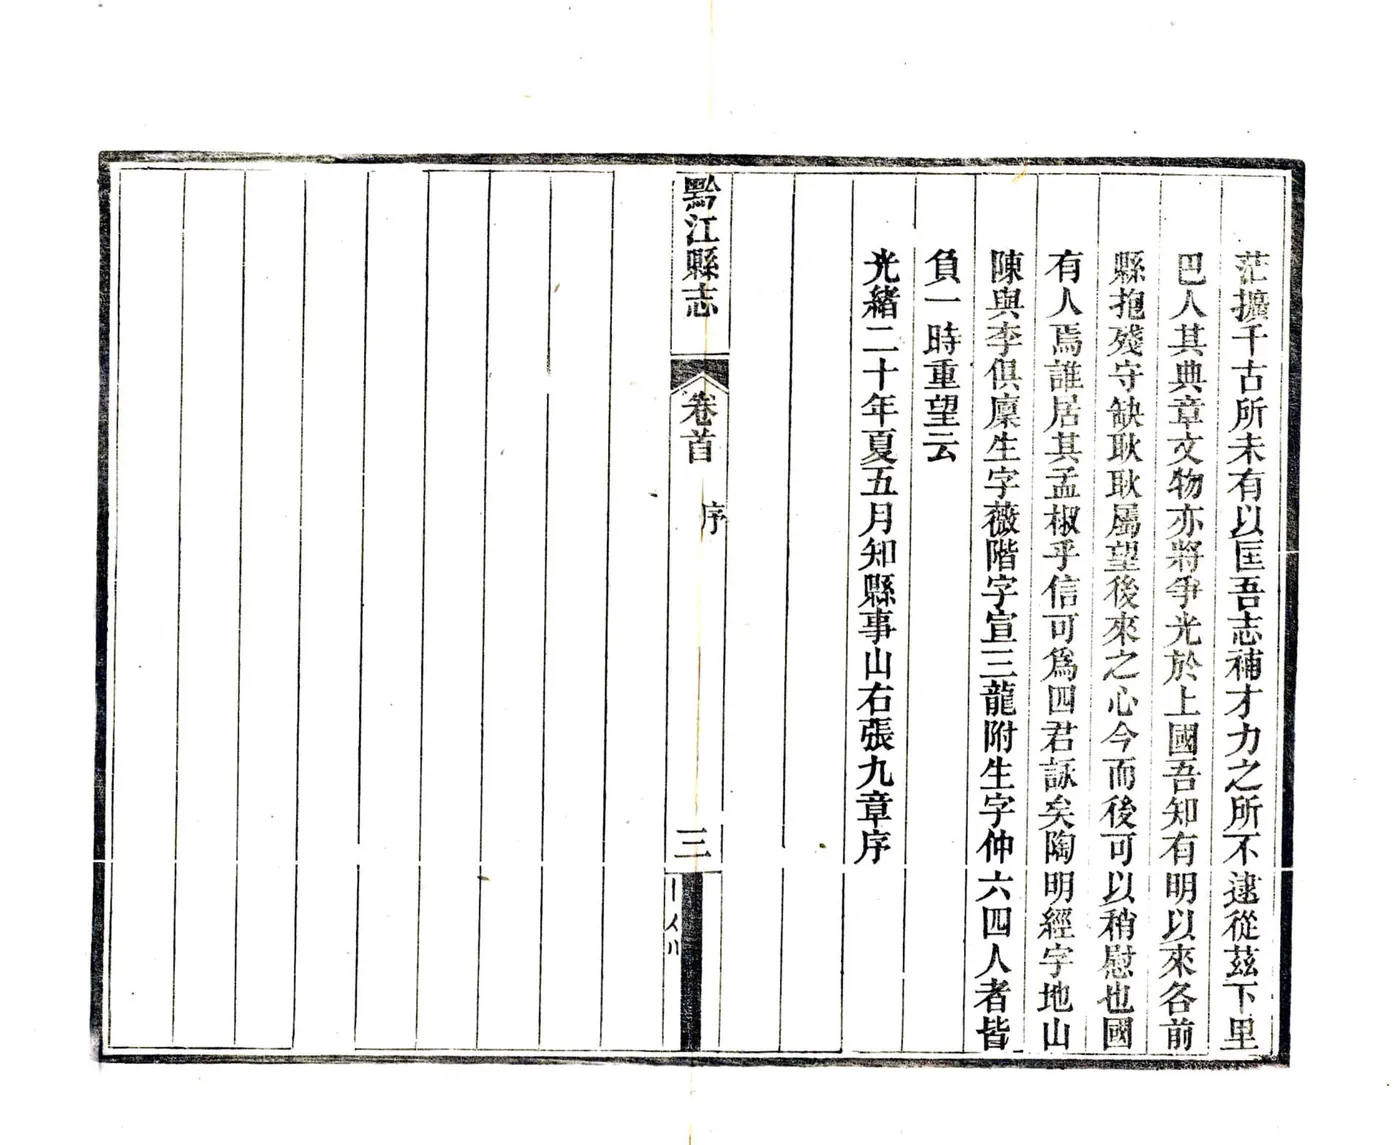 茫擴千古所未有以匡吾志補才力之所不逮從茲下里
巴人其典章文物亦將爭光於上國吾知有明以來各前
縣抱殘守缺耿耿屬望後來之心今而後可以稍慰也國
有人焉誰居其孟椒乎信可爲四君詠矣陶明經字地山
陳與李俱廩生字薇階字宣三龍附生字仲六四人者皆
負一時重望云
光緒二十年夏五月知縣事山右張九章序
黔江縣志
卷首
序
三